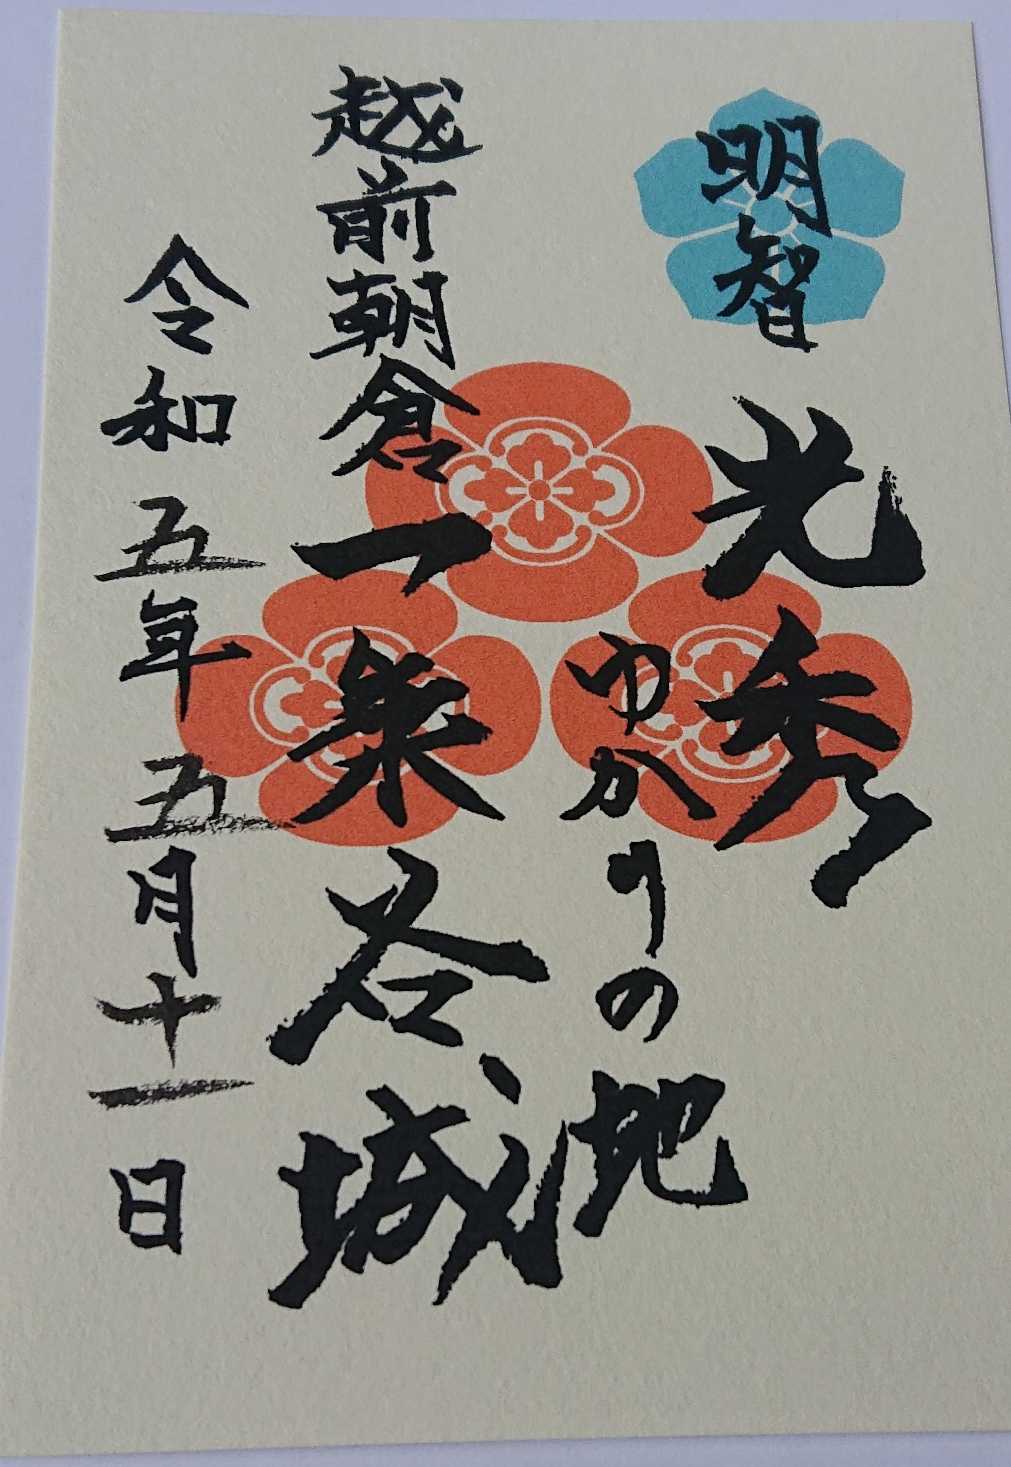 明智光秀
ゆかりの地
越前朝倉一乗谷城
令和五年五月十一日